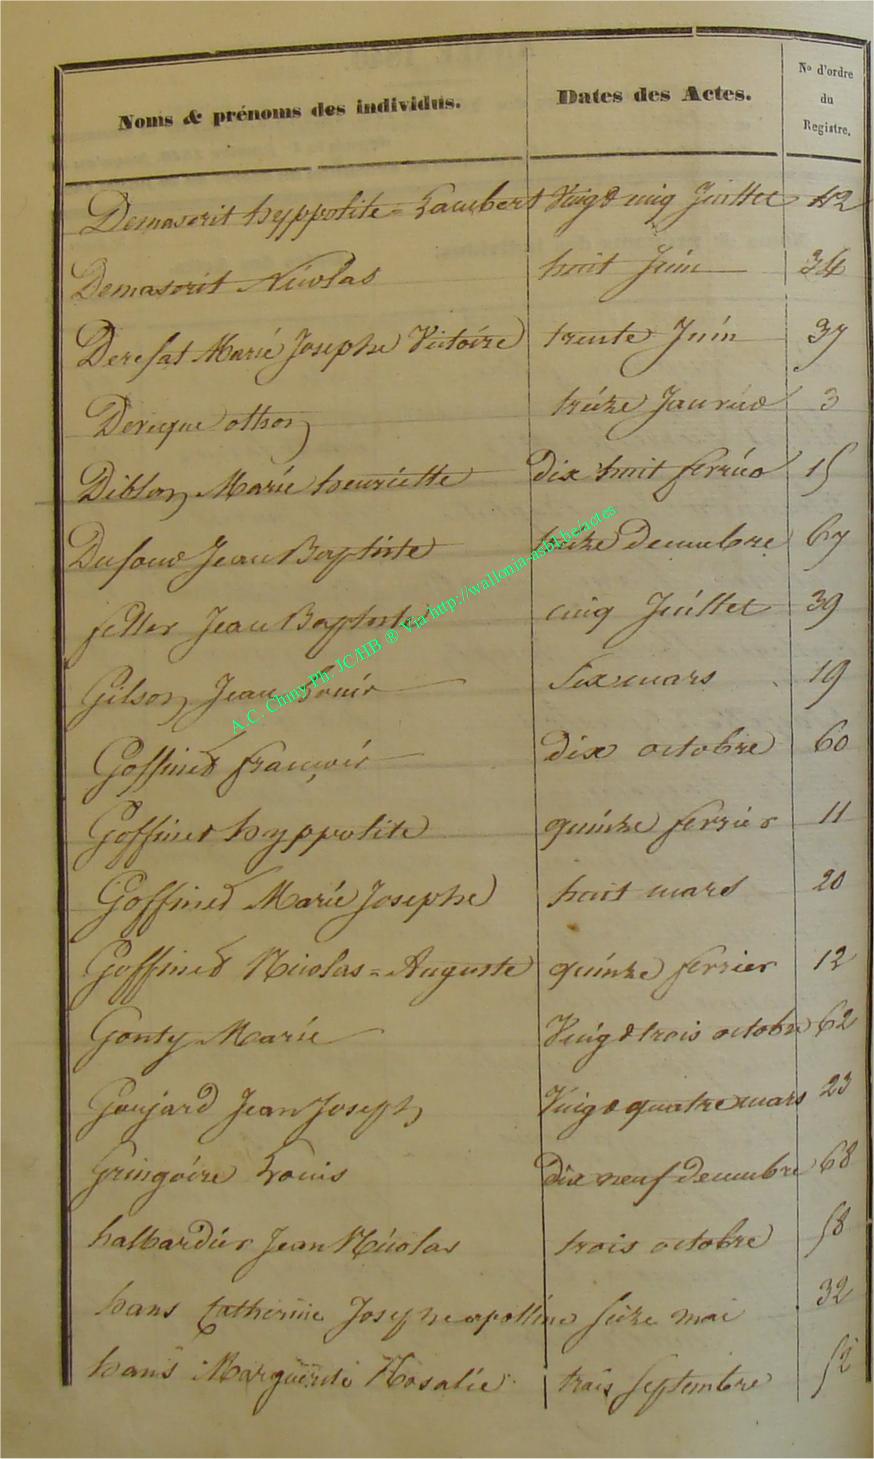 Noms & prénoms des individus. Dates des Actes. No d'ordre du Registre.
Demasorit hyppolite=Lambert Vingt cinq Juillet 42
Demasorit Nicolas huit Juin 34
Derefat Marie Josephe Victoire trente Juin 37
Derique othon treize Janvier 3
Diblon Marie henriette Dix huit fevrier 15
Dufour Jean Baptiste Decembre 67
feller Jean Baptiste cinq Juillet 39
Gilson Jean Louis Six mars 19
Goffinet françois dix octobre 60
Goffinet hyppolite quinze fevrier 11
Goffinet Marie Josephe huit mars 20
Goffinet Nicolas=Auguste quinze fevrier 12
Gonty Marie Vingt trois octobre 62
Goujard Jean Joseph Vingt quatre mars 23
Gringoire Louis Dix neuf Decembre 68
halbardier Jean Nicolas trois octobre 58
hans Catherine Josephe apolline Seize mai 32
hans Marguerite Rosalie trois Septembre 52
A.C. Chiny Ph. JC/HB ® Via http://wallonia-asbl.be/actes